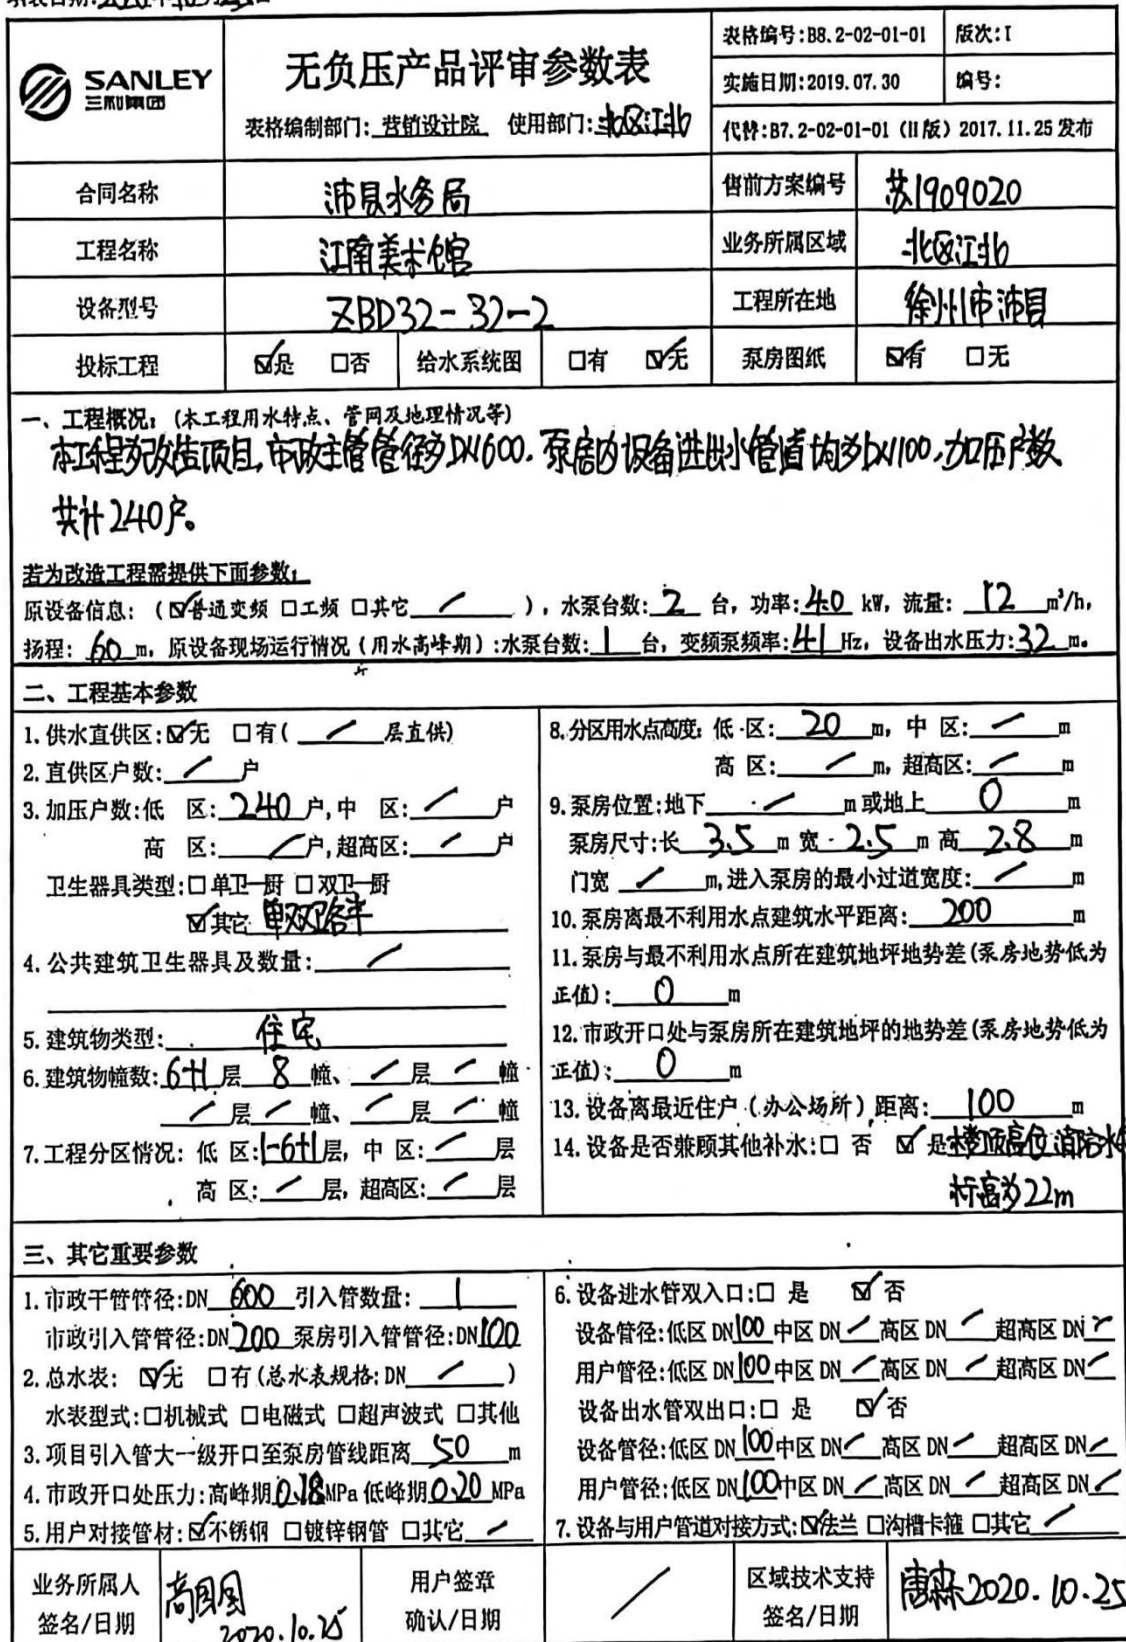 填表日期:2020年10月25日
SANLEY
三利集团
无负压产品评审参数表
表格编制部门: 营销设计院 使用部门: 北区江北
表格编号:B8.2-02-01-01 版次:I
实施日期:2019.07.30 编号:
代替:B7.2-02-01-01 (II版) 2017.11.25 发布
合同名称 沛县水务局 售前方案编号 苏1909020
工程名称 江南美术馆 业务所属区域 北区江北
设备型号 ZBD32-32-2 工程所在地 徐州市沛县
投标工程 ☑是 □否 给水系统图 □有 ☑无 泵房图纸 ☑有 □无
一、工程概况: (本工程用水特点、管网及地理情况等)
本工程为改造项目,市政主管管径为DN600.泵房内设备进出水管道均为DN100,加压户数
共计240户。
若为改造工程需提供下面参数:
原设备信息: (☑普通变频 □工频 □其它 / ), 水泵台数: 2 台, 功率: 4.0 kW, 流量: 12 m³/h,
扬程: 60 m, 原设备现场运行情况 (用水高峰期) :水泵台数: 1 台, 变频泵频率: 41 Hz, 设备出水压力: 32 m。
二、工程基本参数
1.供水直供区:☑无 □有( / 层直供)
2.直供区户数: / 户
3.加压户数:低 区: 240 户,中 区: / 户
高 区: / 户,超高区: / 户
卫生器具类型:□单卫一厨 □双卫一厨
☑其它 单双卫各半
4.公共建筑卫生器具及数量: /
5.建筑物类型: 住宅
6.建筑物幢数: 6+1 层 8 幢、 / 层 / 幢
/ 层 / 幢、 / 层 / 幢
7.工程分区情况: 低 区: 1-6+1 层, 中 区: / 层
高 区: / 层, 超高区: / 层
8.分区用水点高度: 低 区: 20 m, 中 区: / m
高 区: / m, 超高区: / m
9.泵房位置:地下 / m 或地上 0 m
泵房尺寸:长 3.5 m 宽 2.5 m 高 2.8 m
门宽 / m,进入泵房的最小过道宽度: / m
10.泵房离最不利用水点建筑水平距离: 200 m
11.泵房与最不利用水点所在建筑地坪地势差(泵房地势低为
正值): 0 m
12.市政开口处与泵房所在建筑地坪的地势差(泵房地势低为
正值): 0 m
13.设备离最近住户 (办公场所) 距离: 100 m
14.设备是否兼顾其他补水:□ 否 ☑ 是 楼顶高位消防水
标高为22m
三、其它重要参数
1.市政干管管径:DN 600 引入管数量: 1
市政引入管管径:DN 200 泵房引入管管径:DN 100
2.总水表: ☑无 □有(总水表规格:DN / )
水表型式:□机械式 □电磁式 □超声波式 □其他
3.项目引入管大一级开口至泵房管线距离 50 m
4.市政开口处压力:高峰期 0.18 MPa 低峰期 0.20 MPa
5.用户对接管材:☑不锈钢 □镀锌钢管 □其它 /
6.设备进水管双入口:□ 是 ☑否
设备管径:低区 DN 100 中区 DN / 高区 DN / 超高区 DN /
用户管径:低区 DN 100 中区 DN / 高区 DN / 超高区 DN /
设备出水管双出口:□ 是 ☑否
设备管径:低区 DN 100 中区 DN / 高区 DN / 超高区 DN /
用户管径:低区 DN 100 中区 DN / 高区 DN / 超高区 DN /
7.设备与用户管道对接方式:☑法兰 □沟槽卡箍 □其它 /
业务所属人
签名/日期
高圆圆
2020.10.25
用户签章
确认/日期
/
区域技术支持
签名/日期
唐森2020.10.25